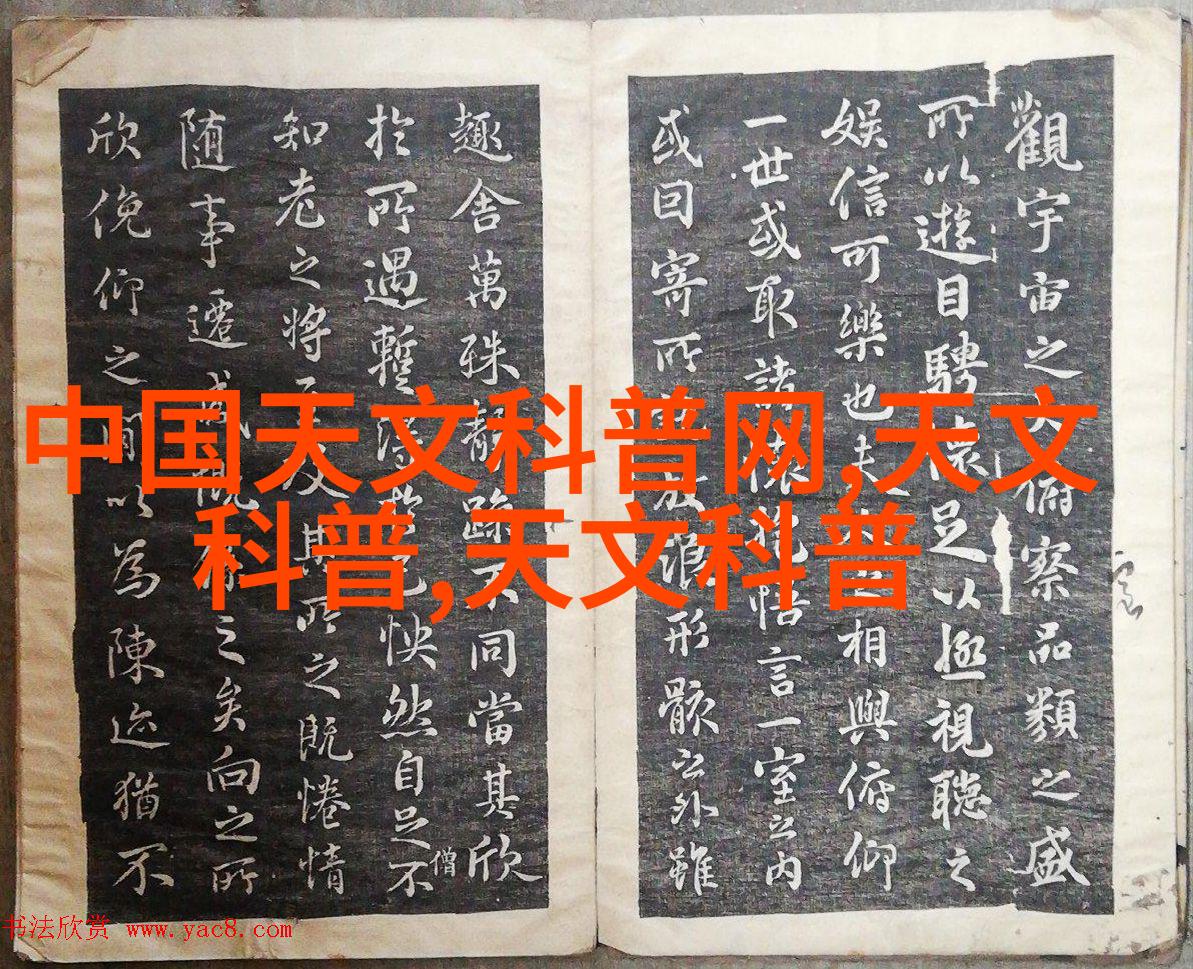 中国天文科普网,天文
科普,天文科普
觀宇宙之大俯察品類之盛
所以遊目騁懷足以極視聽之
娛信可樂也夫相與俯仰
一世或取諸懷抱悟言一室之内
或因寄所放浪形骸之外雖
趣舍萬殊靜躁不同當其欣
於所遇暫得於己怏然自足不
僧
知老之將至及其所之既惓情
随事遷感慨之矣向之所
欣俛仰之間以為陳迹猶不
书法欣赏 www.yac8.com